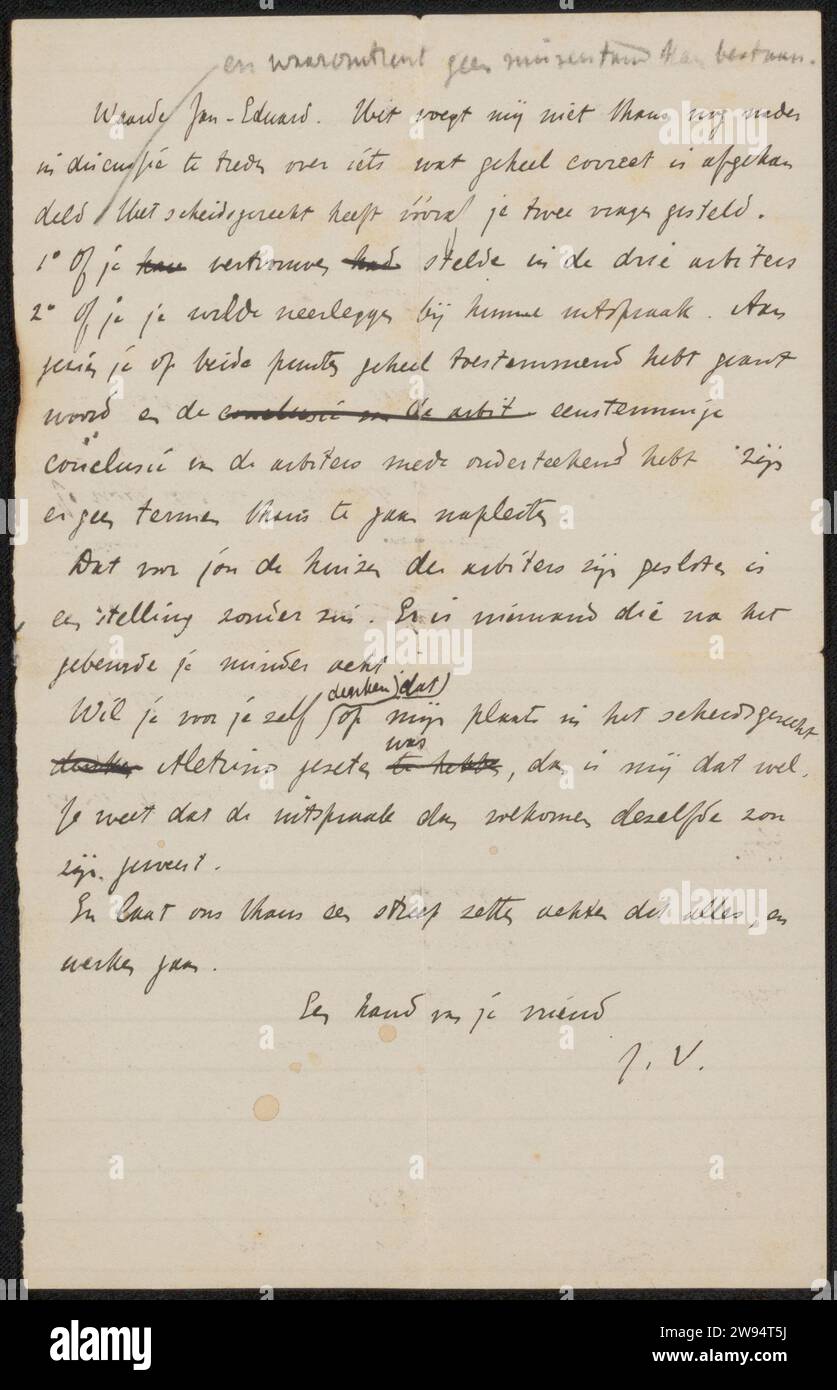 en waaromtrent geen misverstand kan bestaan.
Waarde Jan-Eduard. Het voegt mij niet thans nog nader
in discussie te treden over iets wat geheel correct is afgehan
deld Het scheidsgerecht heeft vooraf je twee vragen gesteld.
1° Of je vertrouwen had stelde in de drie arbiters
2° Of je je wilde neerleggen bij hunne uitspraak. Aan
gezien je op beide punten geheel toestemmend hebt geant
woord en de conclusie van de arbit eenstemmige
conclusie van de arbiters mede onderteekend hebt zijn
er geen termen thans te gaan napleiten.
Dat voor jou de huizen der arbiters zijn gesloten is
een stelling zonder zin. Er is niemand die na het
gebeurde je minder acht
denken) dat)
Wil je voor je zelf (op mijn plaats in het scheidsgerecht
was
denken Aletrino gezeten te hebben, dan is mij dat wel.
Je weet dat de uitspraak dan volkomen dezelfde zou
zijn geweest.
En laat ons thans een streep zetten achter dit alles, en
werken gaan.
Een hand van je vriend
J. V.
alamy
alamy
alamy
Image ID: 2W94T5J
www.alamy.com